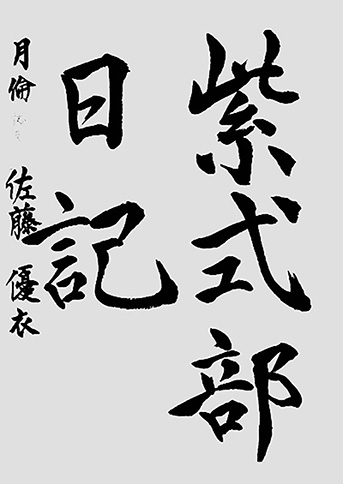 紫式部
日記
月倫 佐藤優衣